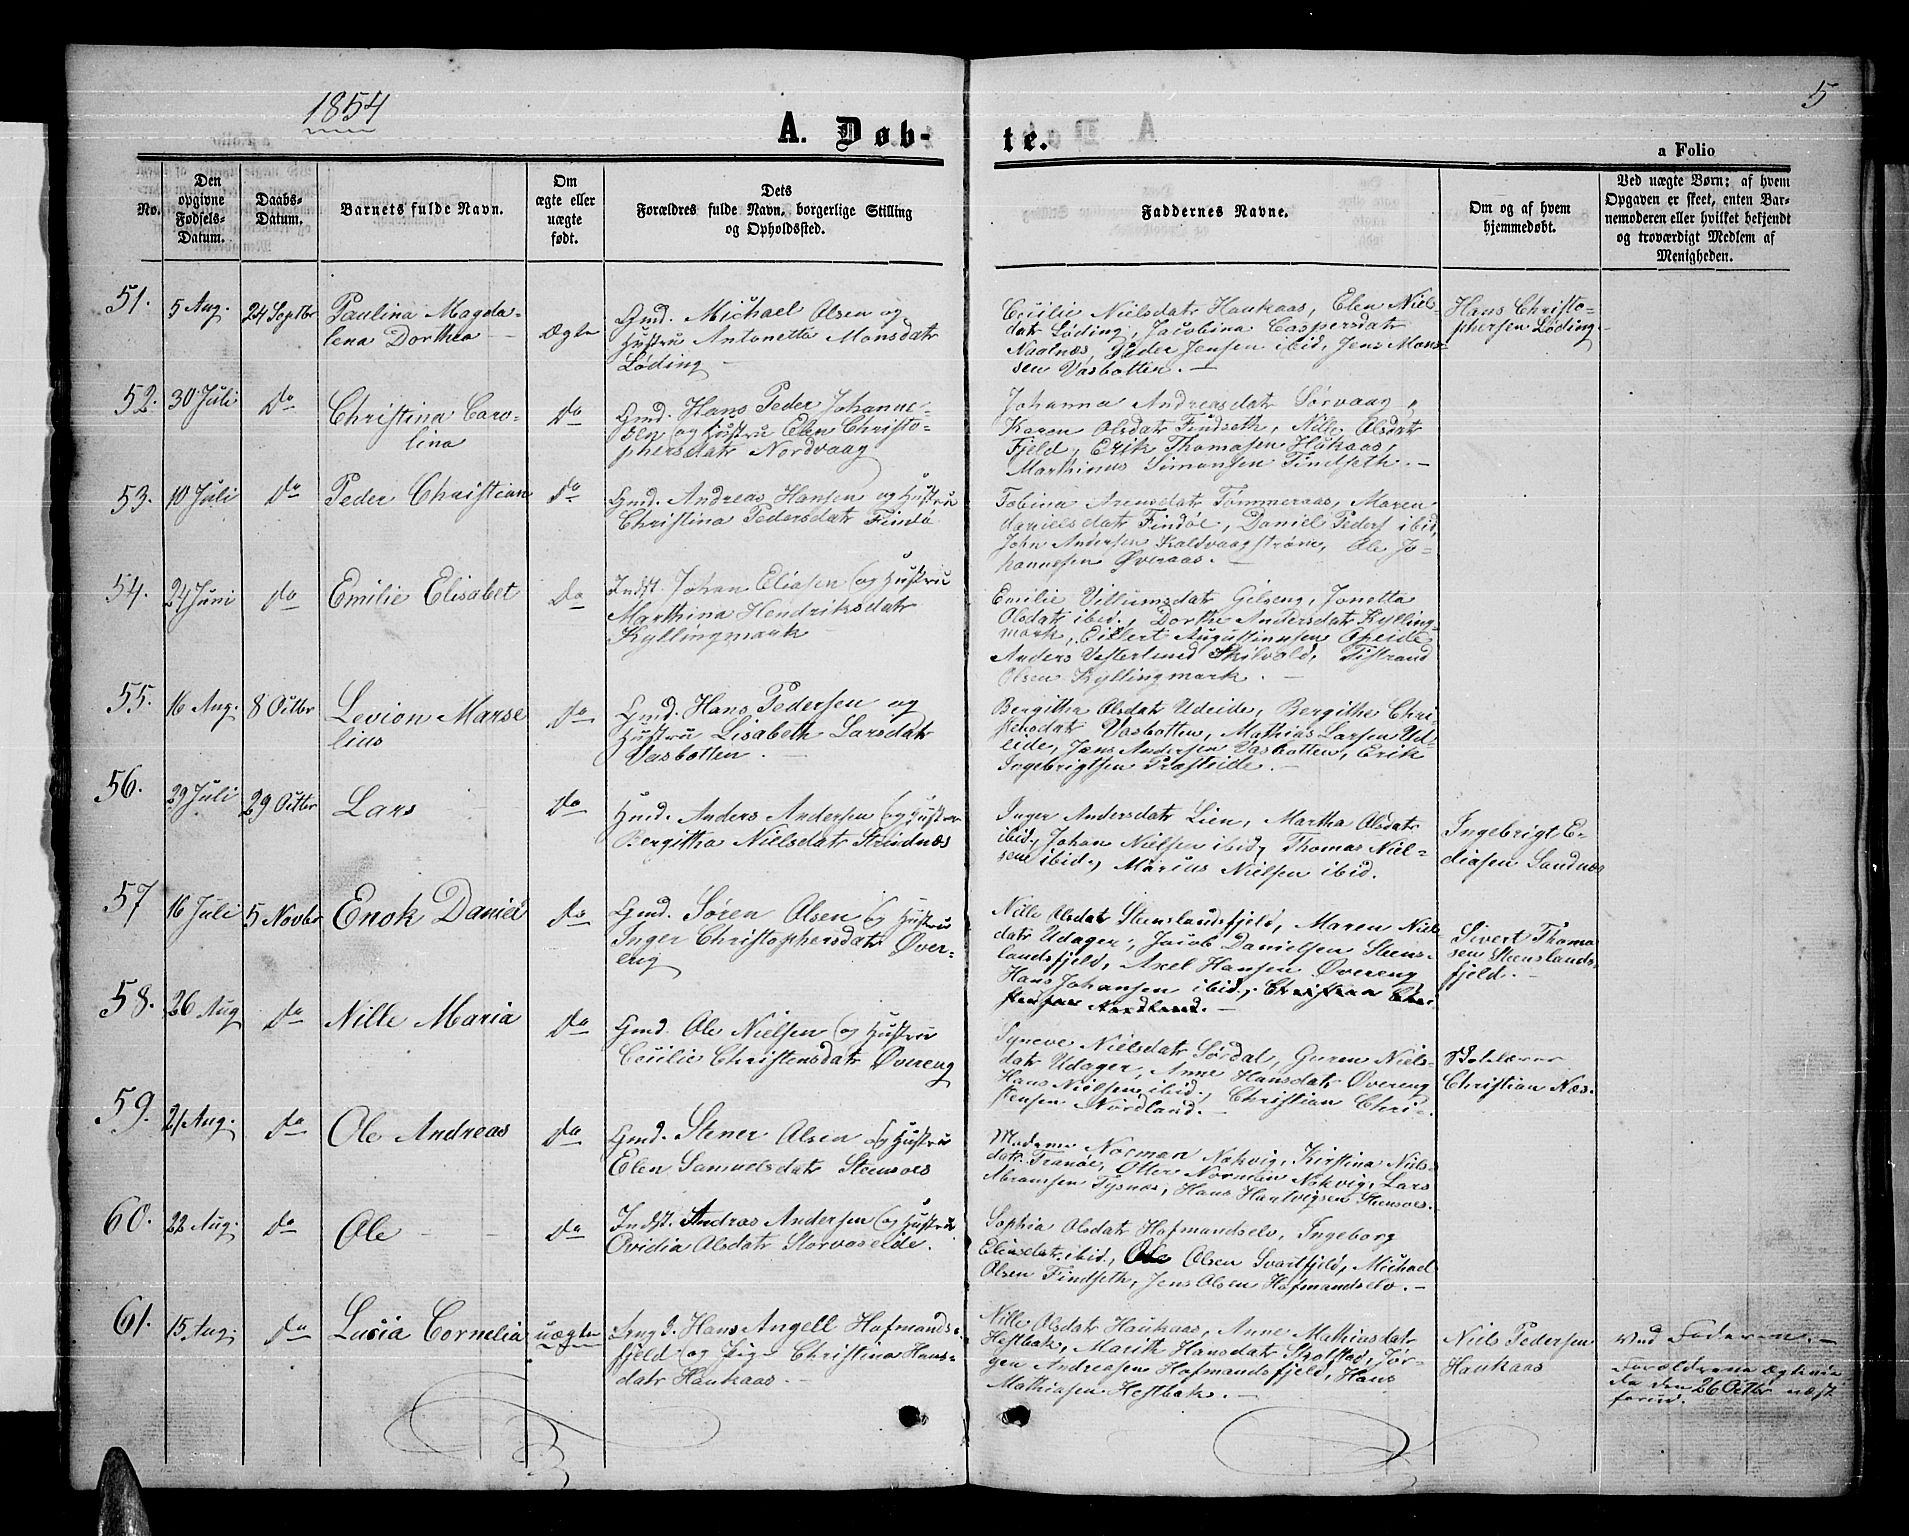 1854
5
A. Døb-
te.
a Folio
No.
Den
opgivne
Fødsels-
Datum.
Daabs-
Datum.
Barnets fulde Navn.
Om
ægte eller
uægte
født.
Dets
Forældres fulde Navn, borgerlige Stilling
og Opholdsted.
Faddernes Navne.
Om og af hvem
hjemmedøbt.
Ved uægte Børn; af hvem
Opgaven er skeet, enten Bar-
nemoderen eller hvilket bekjendt
og troværdigt Medlem af
Menigheden.
51. 5 Aug. 24 Septbr
Paulina Magda-
lena Dorthea
Ægte
Gmd. Michael Olsen og
Hustru Antonetta Monsdatr
Løding
Cecilie Nielsdatr Haukaas, Elen Niels
datr Løding, Jacobina Caspersdatr
Naalnæs, Peder Jensen ibid, Jens Mon-
sen Vasbotten.
Hans Christo-
phersen Løding
52. 30 Juli Do
Christina Caro-
lina
Do
Gmd. Hans Peder Johanne-
sen og Hustru Elen Christo-
phersdatr Nordvaag
Johanna Andreasdatr Sørvaag,
Karen Olsdatr Findseth, Nille Olsdatr
Fjeld, Erik Thomasen Haukaas,
Marthinus Simonsen Findseth.
53. 10 Juli Do
Peder Christian
Do
Gmd. Andreas Hansen og Hustru
Christina Pedersdatr Findø
Tobina Arensdatr Tømmeraas, Maren
Danielsdatr Findøe, Daniel Peders ibid,
John Andersen Kaldvaagstrøm, Ole Jo-
hannesen Øveraas.
54. 24 Juni Do
Emilie Elisabet
Do
Indst. Johan Eliasen og Hustru
Marthina Hendriksdatr
Kyllingmark
Emilie Villumsdatr Gilseng, Jonetta
Olsdatr ibid., Dorthe Andersdatr Kylling-
mark, Eilert Augustinusen Opeide,
Anders Vesterlund Skilvold, Tistrand
Olsen Kyllingmark.
55. 16 Aug. 8 Octbr
Levion Marse
lius
Do
Gmd. Hans Pedersen og
Hustru Lisabeth Larsdatr
Vasbotten.
Bergitha Olsdatr Udeide, Bergithe Chri-
stensdatr Vasbotten, Mathias Larsen Ud-
eide, Jens Andersen Vasbotten, Erik
Ingebrigtsen Præsteide.
56. 29 Juli 29 Octbr
Lars
Do
Hmd. Anders Andersen og Hustru
Bergitha Nielsdatr Strindnæs
Inger Andersdatr Lien, Martha Olsdatr
ibid, Johan Nielsen ibid, Thomas Niel-
sen ibid, Marius Nielsen ibid.
Ingebrigt E-
liasen Sandnæs
57 16 Juli 5 Novbr
Enok Daniel
Do
Gmd. Søren Olsen og Hustru
Inger Christophersdatr Over-
eng
Nille Olsdatr Steenslandsfjeld, Maren Niels
datr Udager, Jacob Danielsen Steens-
landsfjeld, Axel Hansen Øvereng
Hans Johansen ibid, Christian Chri-
stensen Nordland.
Sivert Thoma
sen Steenslands-
fjeld.
58. 26 Aug Do
Nille Maria
Do
Gmd. Ole Nielsen og Hustru
Cecilie Christensdatr Øvereng
Syneve Nielsdatr Sørdal, Guren Niels-
datr Udager, Anne Hansdatr Øvereng
Hans Nielsen ibid., Christian Chri-
stensen Nordland.
Skolelærer
Christian Næs.
59. 21 Aug. Do
Ole Andreas
Do
Gmd. Stener Olsen og Hustru
Elen Samuelsdatr Steensoes
Madame Norman Nøkvig, Kirstina Niels
datr Tranøe, Otter Norman Nøkvig, Lars
Abramsen Tysnæs, Hans Hartvigsen Steensoes.
60. 22 Aug. Do
Ole
Do
Indst. Andras Andersen og Hustru
Ovidia Olsdatr Storvaseide.
Sophia Olsdatr Hofmandselv, Ingeborg
Eliasdatr ibid., Ole Olsen Svartfjeld, Michael
Olsen Findseth, Jens Olsen Hofmandselv.
61. 15 Aug. Do
Lusia Cornelia
uægte
Ungd. Hans Angell Hofmands-
fjeld og Pige Christina Hans-
datr Haukaas.
Nille Olsdatr Haukaas, Anne Mathiasdatr
Hestbak, Marith Hansdatr Skolstad, Jør-
gen Andreasen Hofmandsfjeld, Hans
Mathiasen Hestbak.
Niels Pedersen
Haukaas
Ved Faderen.
Forældrene Ægtevie
de den 26 Octbr næst
forud.